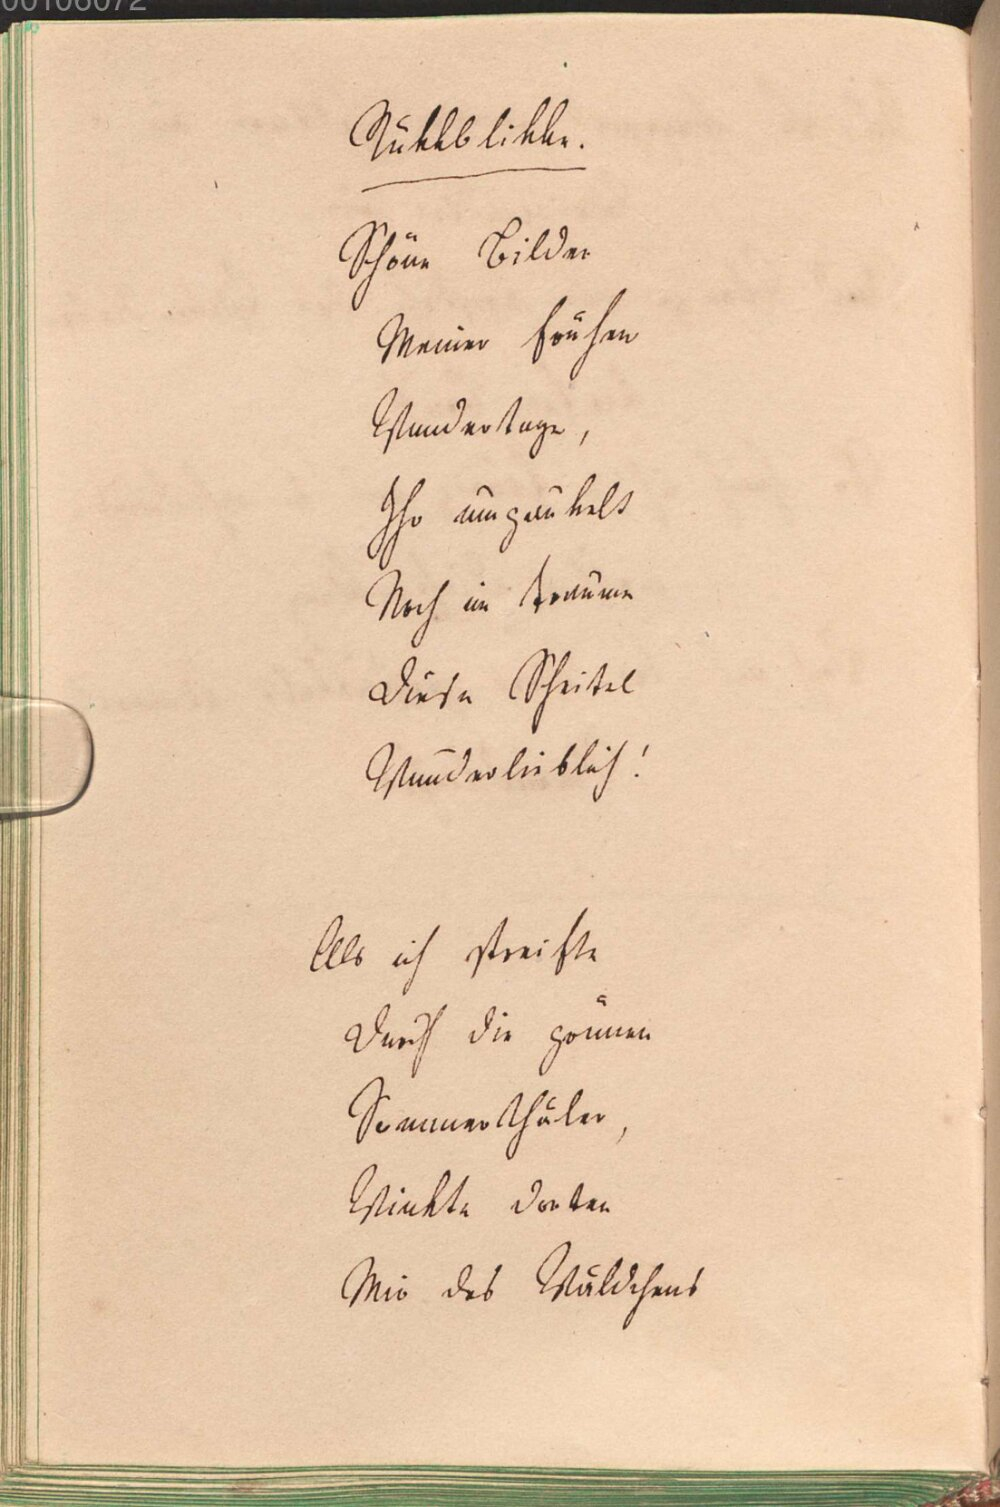 00106072
Rükkblikke.
Schöne Bilder
Meiner frühen
Wandertage,
Ihr umgaukelt
Noch im traume
Diese Scheitel
Wunderlieblich!
Als ich streifte
Durch die grünen
Sommerthäler,
Winkte dorten
Mir des Wäldchens